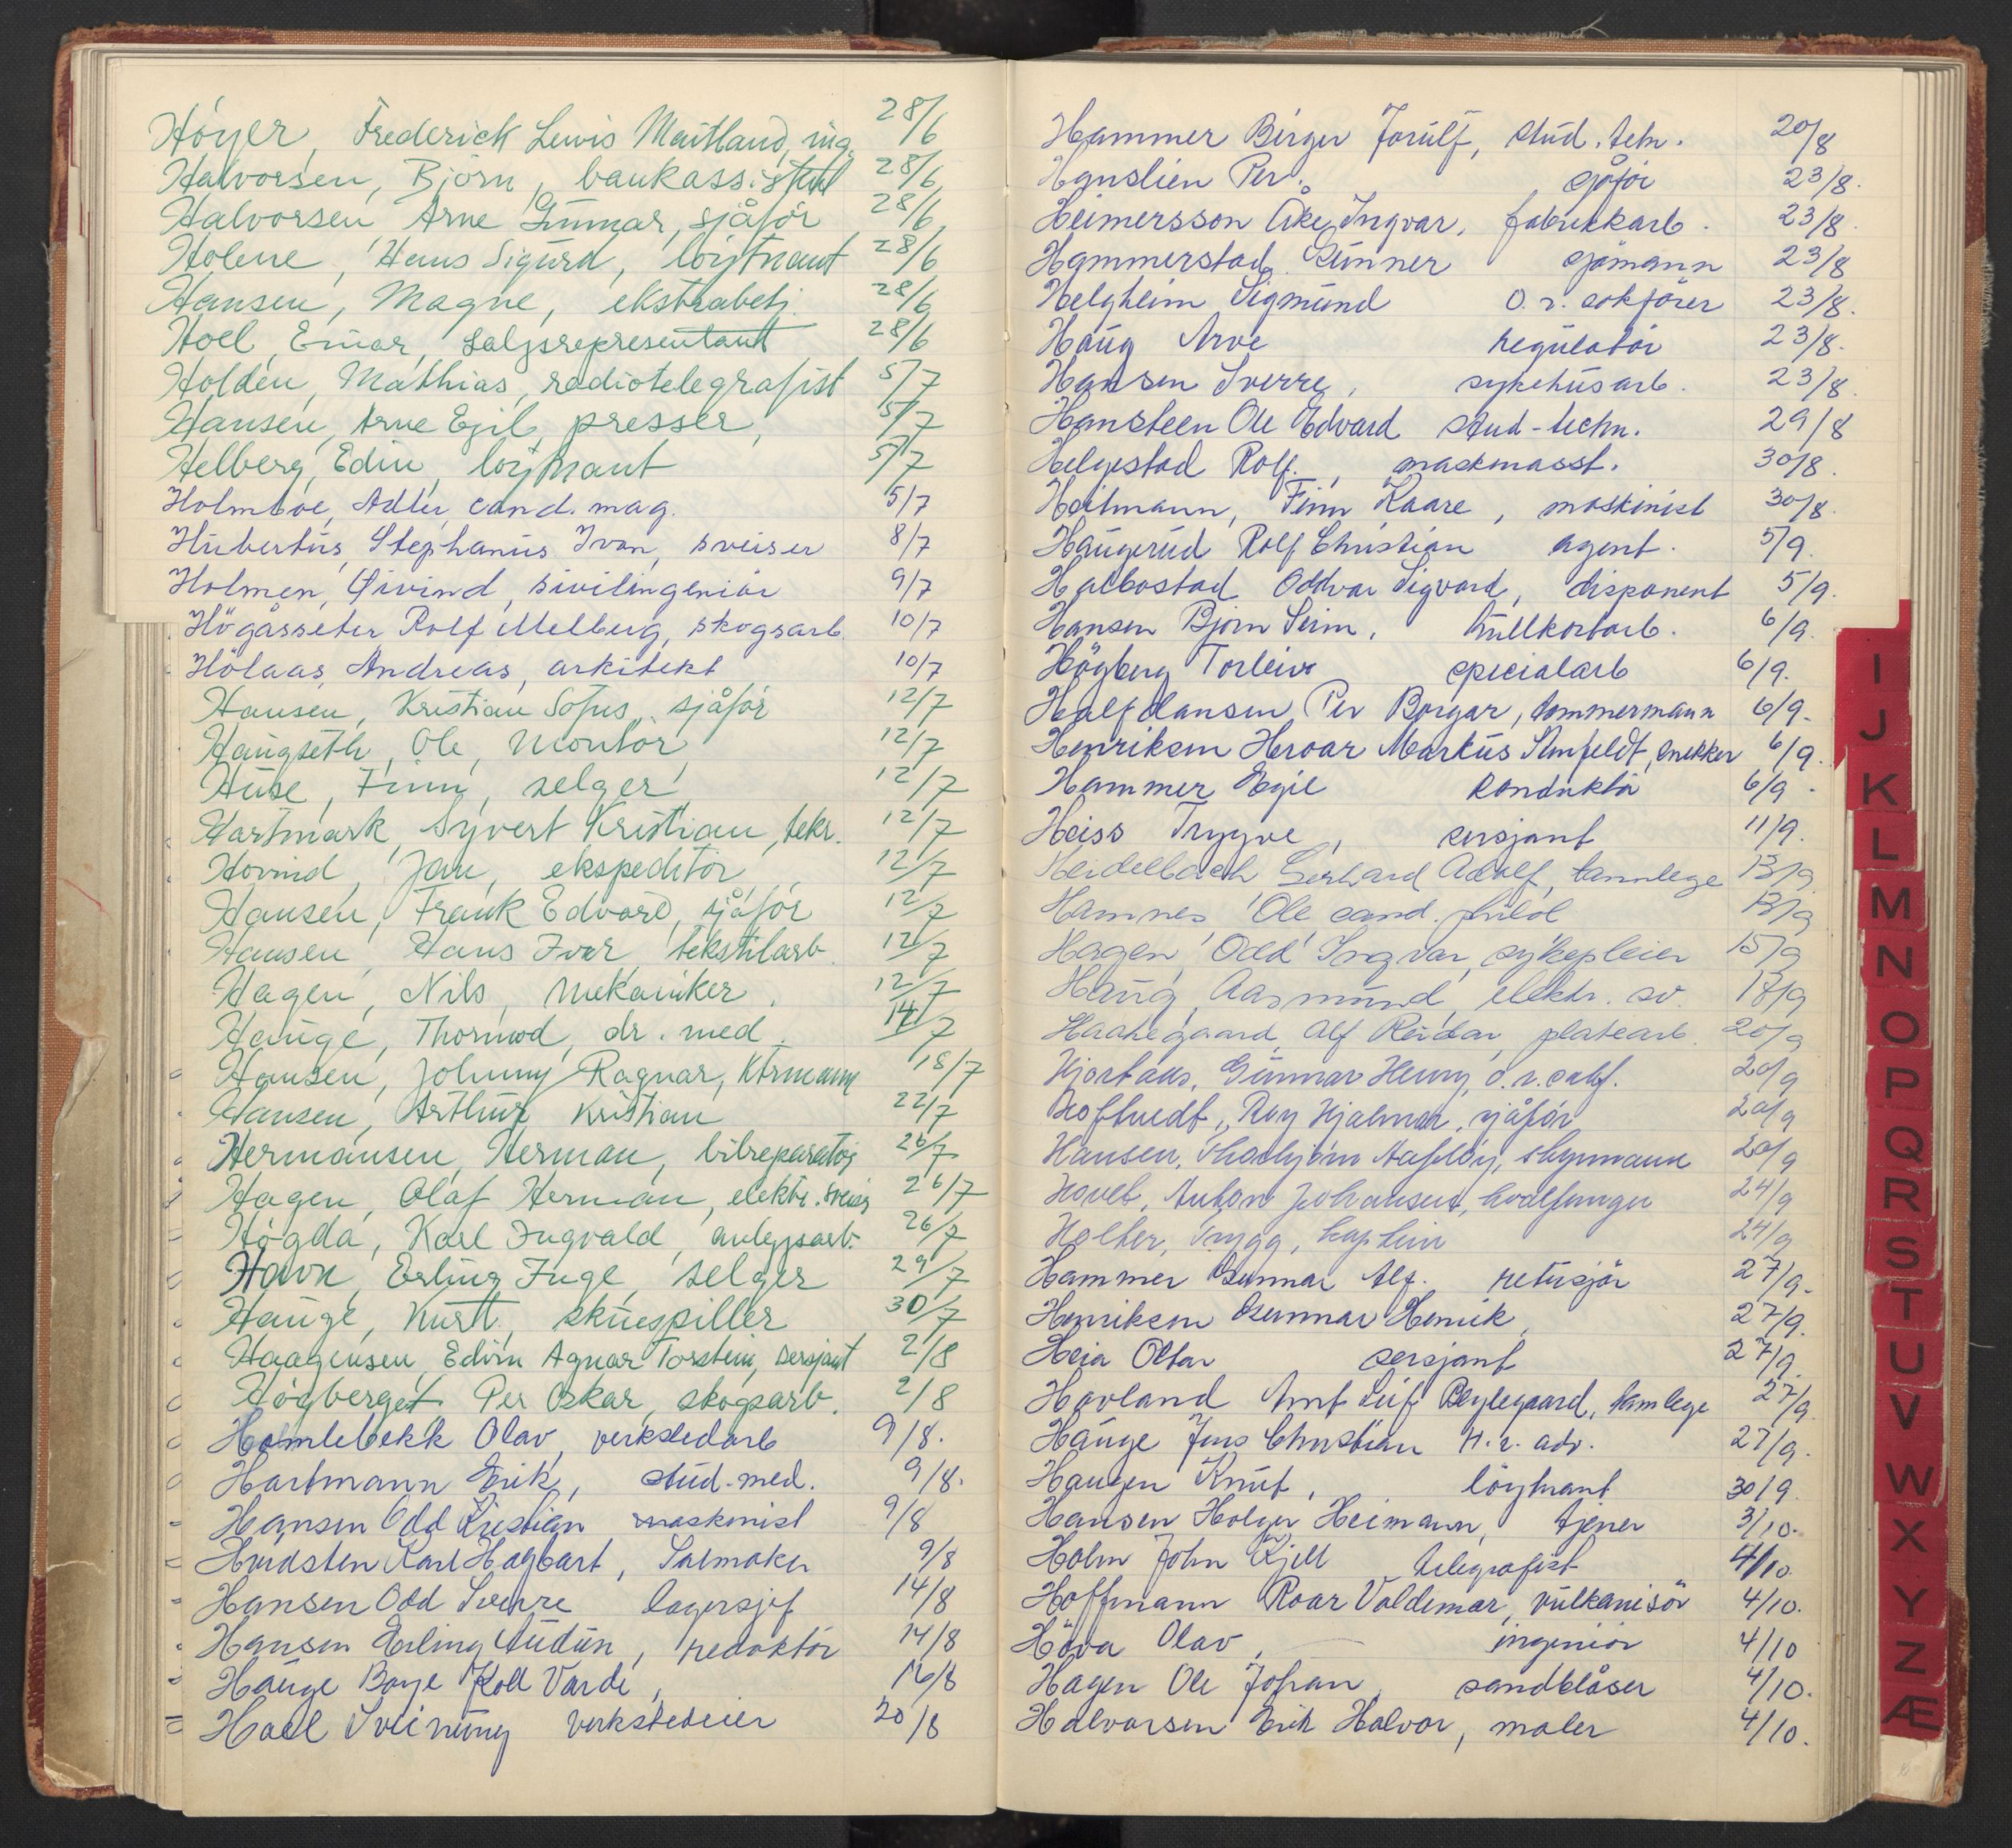 Höyer, Frederick Lewis Maitland, ing. 28/6
Halvorsen, Björn, bankassistent 28/6
Halvorsen, Arne Gunnar, sjåför 28/6
Holene, Hans Sigurd, löytnant 28/6
Hansen, Magne, ekstrabetj. 28/6
Hoel, Einar, salgsrepresentant 28/6
Holden, Mathias, radiotelegrafist 5/7
Hansen, Arne Egil, presser, 5/7
Helberg, Edin, löytnant 5/7
Holmboe, Adler, cand. mag. 5/7
Hubertus, Stephanus Ivan, sveiser 8/7
Holmen, Øivind, sivilingeniör 9/7
Högåsseter Rolf Melberg, skogsarb. 10/7
Hölaas, Andreas, arkitekt 10/7
Hansen, Kristian Sofus, sjåför 12/7
Haugseth, Ole, montör 12/7
Huse, Finn, selger 12/7
Hartmark, Syvert Kristian, tekn. 12/7
Hovind, Jan, ekspeditör 12/7
Hansen, Frank Edvard, sjåför 12/7
Hansen, Hans Ivar, tekstilarb. 12/7
Hagen, Nils, mekaniker. 12/7
Hauge, Thormod, dr. med. 14/7
Hansen, Johnny Ragnar, 18/7
Hansen, Arthur Kristian 22/7
Hermansen, Herman, bilreparatör 26/7
Hagen, Olaf Herman, elektr. sveis 26/7
Högda, Karl Ingvald, anleggsarb. 26/7
Havn, Erling Inge, selger 29/7
Hauge, Kurt, skuespiller 30/7
Haagensen, Edvin Agnar Torstein, sersjant 2/8
Högberget Per Oskar, skogsarb. 2/8
Homlebekk Olav, verkstedarb 9/8.
Hartmann Erik, stud. med. 9/8.
Hansen Odd Kristian maskinist 9/8
Hvidsten Karl Hagbart, Salmaker 9/8
Hansen Odd Sverre lagersjef 14/8
Hansen Erling Audun, redaktör 14/8
Hauge Boye Koll Varde, 16/8
Hoel Sveinung verkstedeier 20/8
Hammer Birger Jorulf, stud. tekn. 20/8
Hanslien Per. sjåför 23/8.
Heimersson Åke Ingvar, fabrikkarb. 23/8.
Hammerstad Gunner sjömann 23/8
Helgheim Sigmund o.r. sakförer 23/8.
Haug Arve regulatör 23/8.
Hansen Sverre, sykehusarb. 23/8.
Hansteen Ole Edvard stud-techn. 29/8
Helgestad Rolf, maskinasst. 30/8.
Heitmann, Finn Kaare, maskinist 30/8.
Haugerud Rolf Christian agent. 5/9.
Halbostad Oddvar Sigvard, disponent 5/9.
Hansen Björn Seim, hullkortarb. 6/9.
Högberg Torleiv specialarb 6/9.
Halfdansen Per Borgar, tømmermann 6/9.
Henriksen Hroar Markus Amfeldt, snekker 6/9.
Hammer Egil konduktör 6/9.
Heiss Trygve, sersjant 11/9.
Heidelbach Gerhard Adolf, tannlege 13/9
Hamnes, Ole cand. philol 13/9
Hagen, Odd Ingvar, sykepleier 15/9
Haug, Aasmund, elektr. sv. 17/9
Haakegaard, Alf Reidar, platearb. 20/9
Hjortaas, Gunnar Henry, o.r. sakf. 20/9
Hoftvedt, Roy Hjalmar, sjåför 20/9
Hansen, Thorbjörn Aaslöy, skymann 20/9
Hovet, Anton Johansen, hvalfanger 24/9
Holter, Trygg, kaptein 24/9
Hammer Gunnar Alf. retusjör 27/9.
Henriksen Gunnar Henrik, 27/9.
Heia Ottar sersjant 27/9.
Havland Arnt Leif Beylegaard, tannlege 27/9.
Hauge Jens Christian H.r. adv. 27/9.
Haugen Knut, löytnant 30/9.
Hansen Holger Heimann, tjener 3/10.
Holm John Kjell telegrafist 4/10.
Hoffmann Roar Valdemar, vulkanisör 4/10.
Höva Olav, ingeniör 4/10
Hagen Ole Johan, sandblåser 4/10.
Halvorsen Erik Halvor, maler 4/10.
I
J
K
L
M
N
O
P
Q
R
S
T
U
V
W
X
Y
Z
Æ